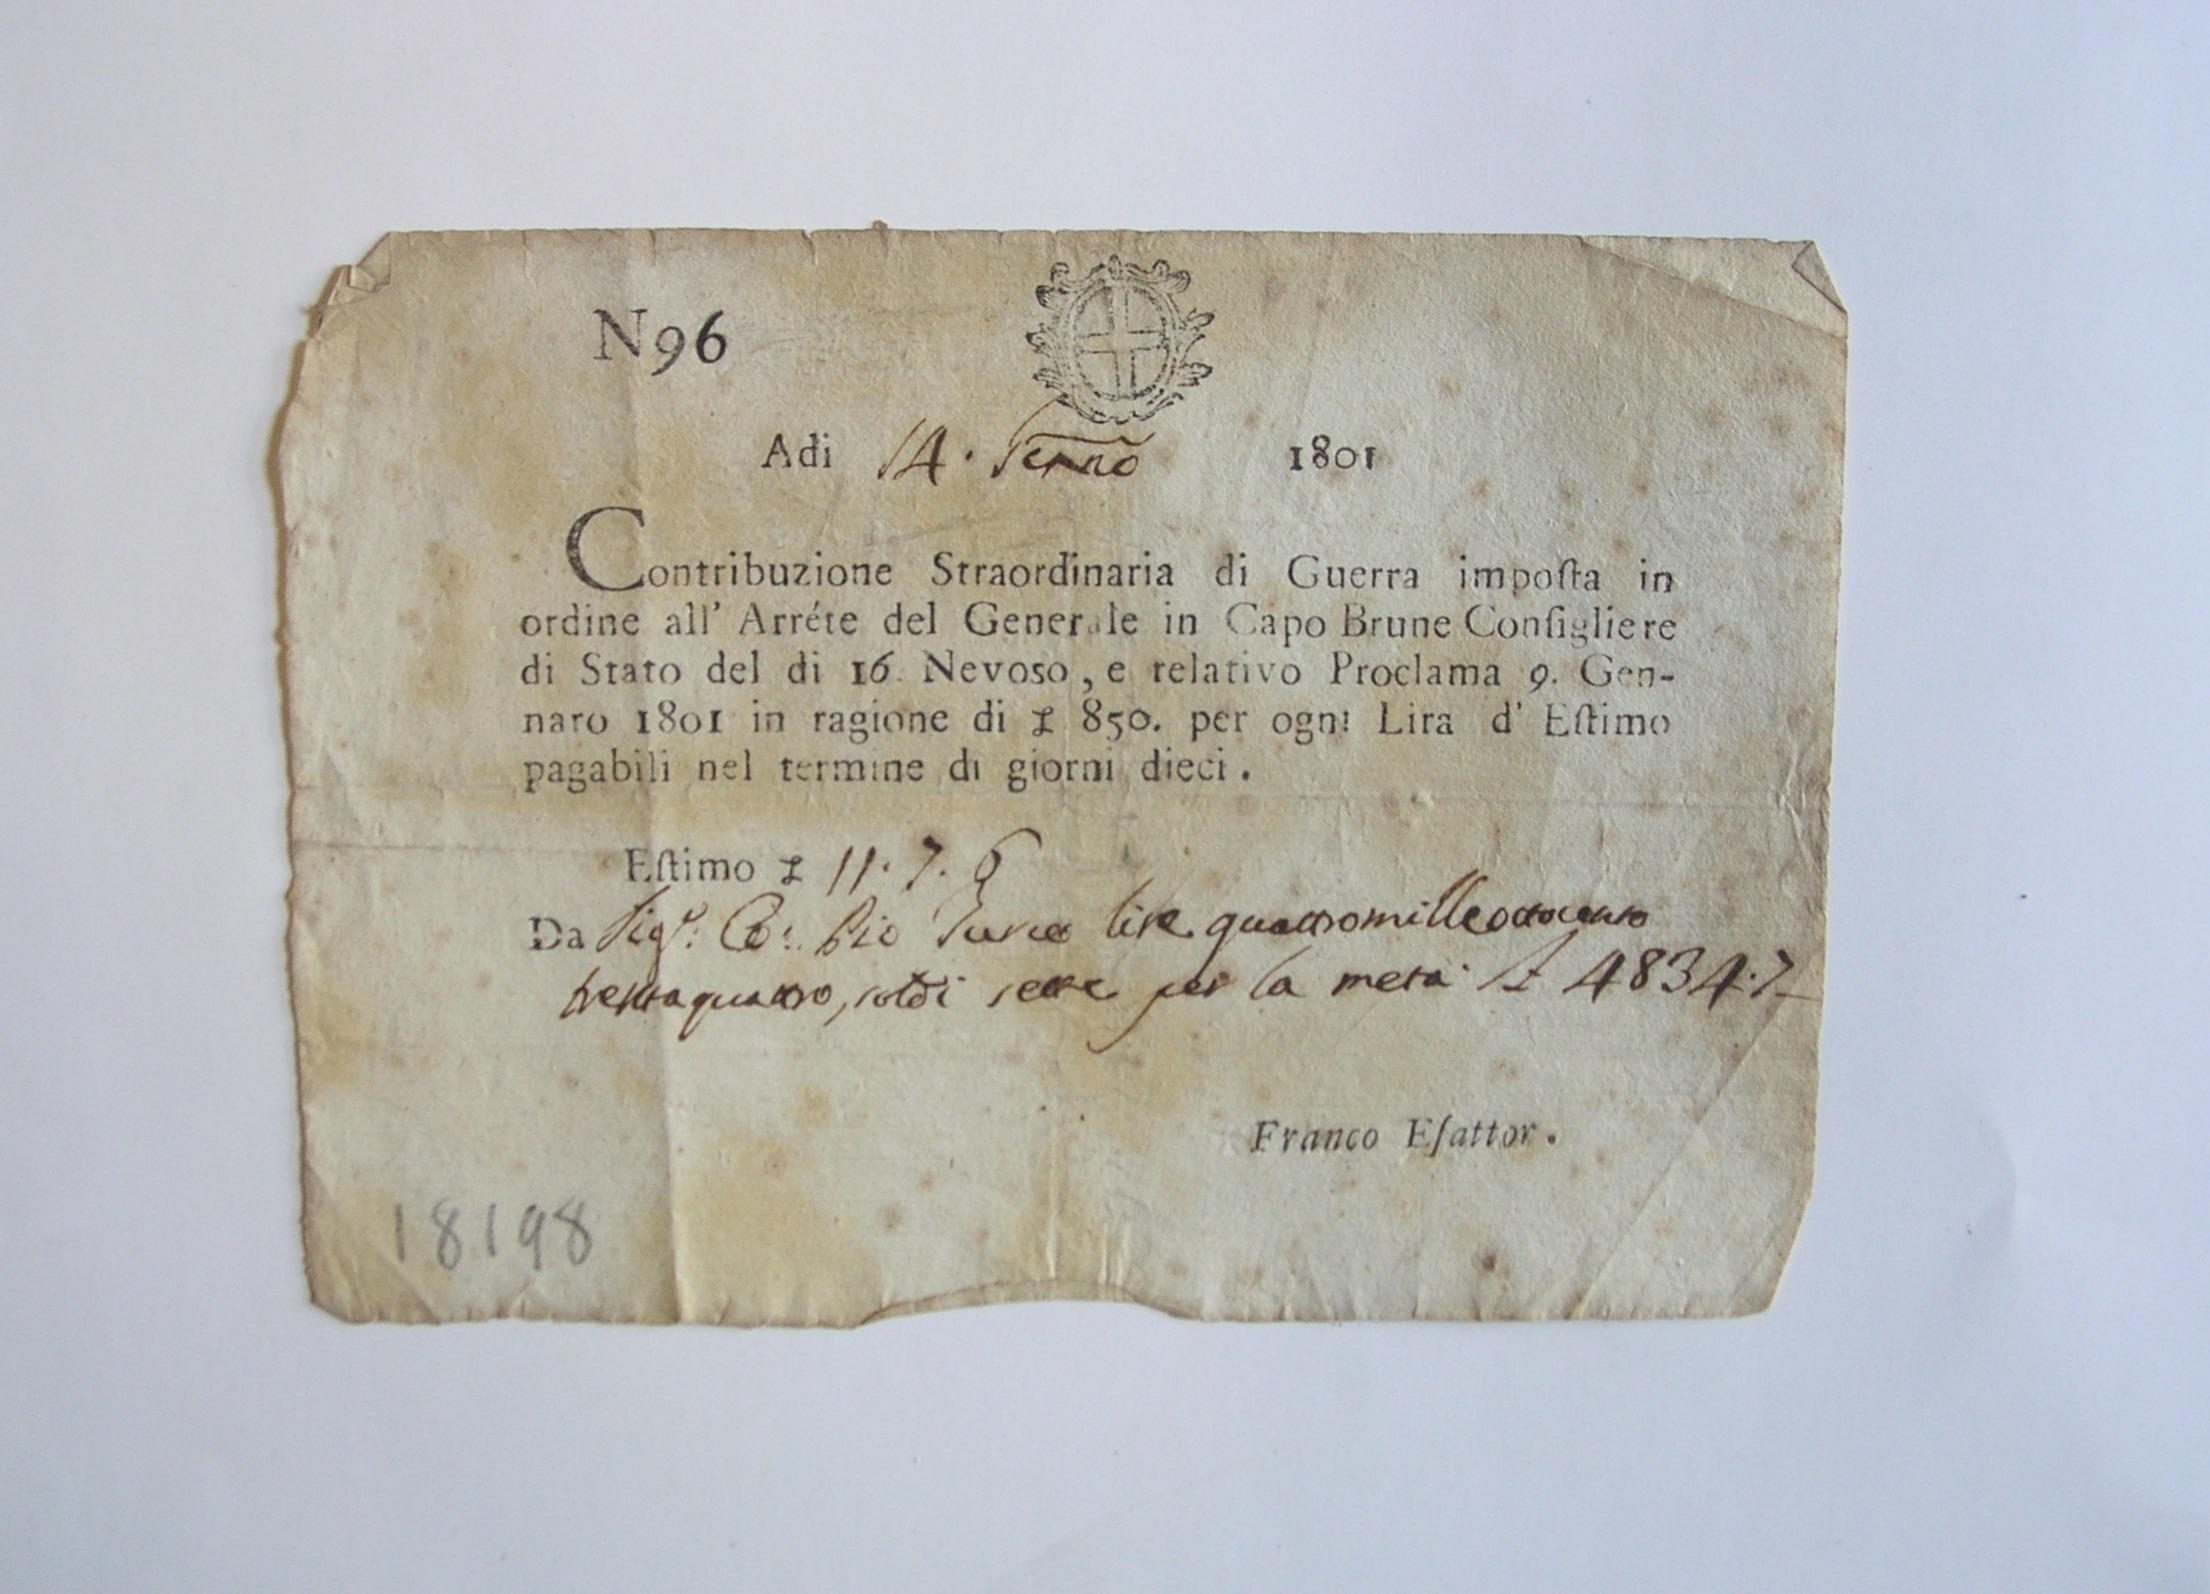 N96
Adi 14. Genno 1801
Contribuzione Straordinaria di Guerra impoſta in
ordine all' Arréte del Generale in Capo Brune Conſigliere
di Stato del di 16 Nevoso, e relativo Proclama 9. Gen-
naro 1801 in ragione di £ 850. per ogni Lira d' Eſtimo
pagabili nel termine di giorni dieci.
Eſtimo £ 11. 7. 6
Da Sigr: Co: Pio lire quattromilleottocento
trentaquattro, soldi sette per la metà £ 4834.7
Franco Eſattor.
18198